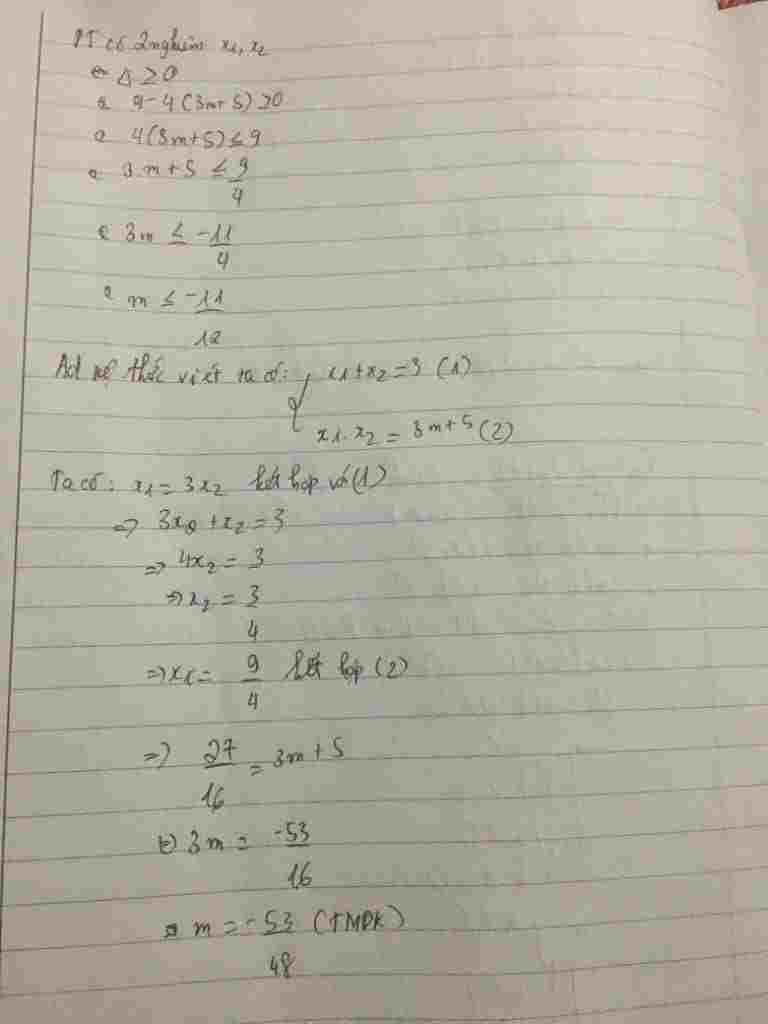 PT có 2 nghiệm x1, x2
⇔ Δ ≥ 0
⇔ 9 - 4(3m+5) ≥ 0
⇔ 4(3m+5) ≤ 9
⇔ 3m + 5 ≤ 9/4
⇔ 3m ≤ -11/4
⇔ m ≤ -11/12
Ad hệ thức viét ta có: { x1 + x2 = 3 (1)
x1. x2 = 3m+5 (2)
Ta có: x1 = 3x2 kết hợp với (1)
=> 3x2 + x2 = 3
=> 4x2 = 3
=> x2 = 3/4
=> x1 = 9/4 kết hợp (2)
=> 27/16 = 3m + 5
⇔ 3m = -53/16
⇔ m = -53/48 (TMĐK)